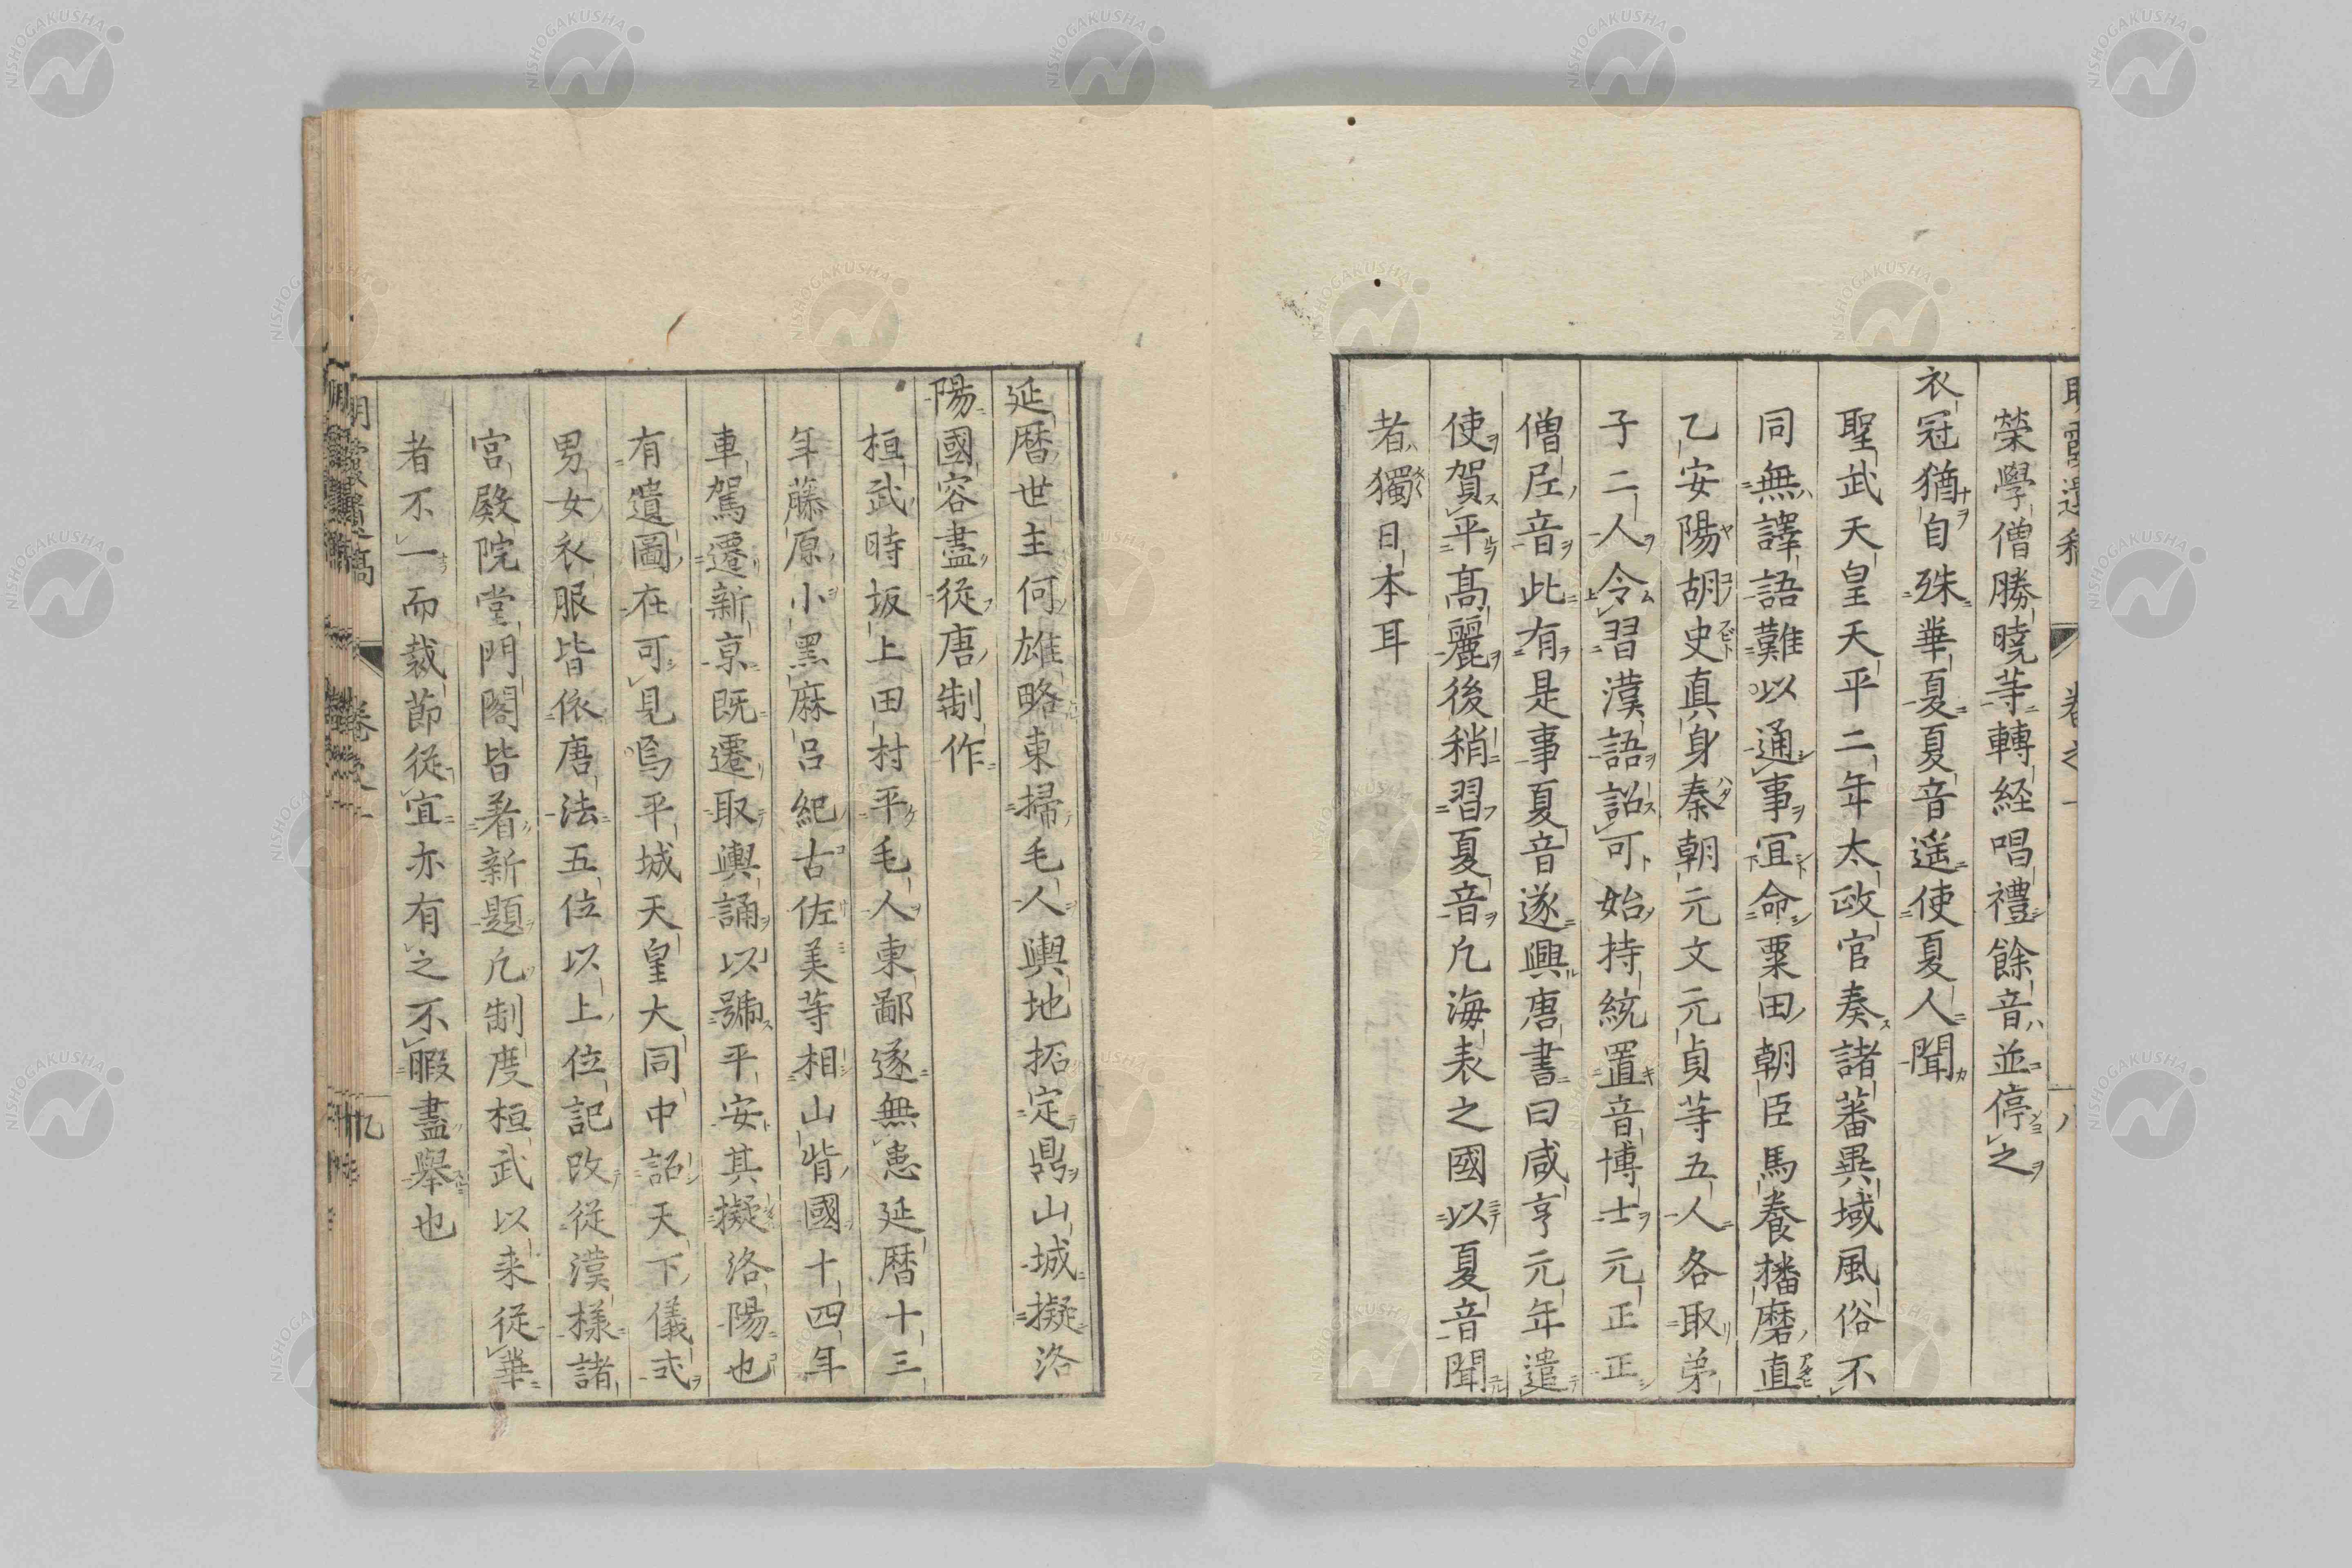 榮學僧勝曉等轉経唱禮餘音並停之
衣冠猶自殊華夏夏音遥使夏人聞
聖武天皇天平二年太政官奏諸蕃異域風俗不
同無譯語難以通事宜命粟田朝臣馬養播磨直
乙安陽胡史真身秦朝元文元貞等五人各取弟
子二人令習漢語詔可始持統置音博士元正正
僧尼音此有是事夏音遂興唐書曰咸亨元年遣
使賀平髙麗後稍習夏音凢海表之國以夏音聞
者獨日本耳
延暦世主何雄略東掃毛人輿地拓定鼎山城擬洛
陽國容盡從唐制作
桓武時坂上田村平毛人東鄙遂無患延暦十三
年藤原小黒麻呂紀古佐美等相山背國十四年
車駕遷新京既遷取輿誦以號平安其擬洛陽也
有遺圖在可見嗚平城天皇大同中詔天下儀式
男女衣服皆依唐法五位以上位記改從漢様諸
宮殿院堂門閣皆著新題凢制度桓武以来從華
者不一而裁節從宜亦有之不暇盡舉也
卷之一
九
NISHOGAKUSHA